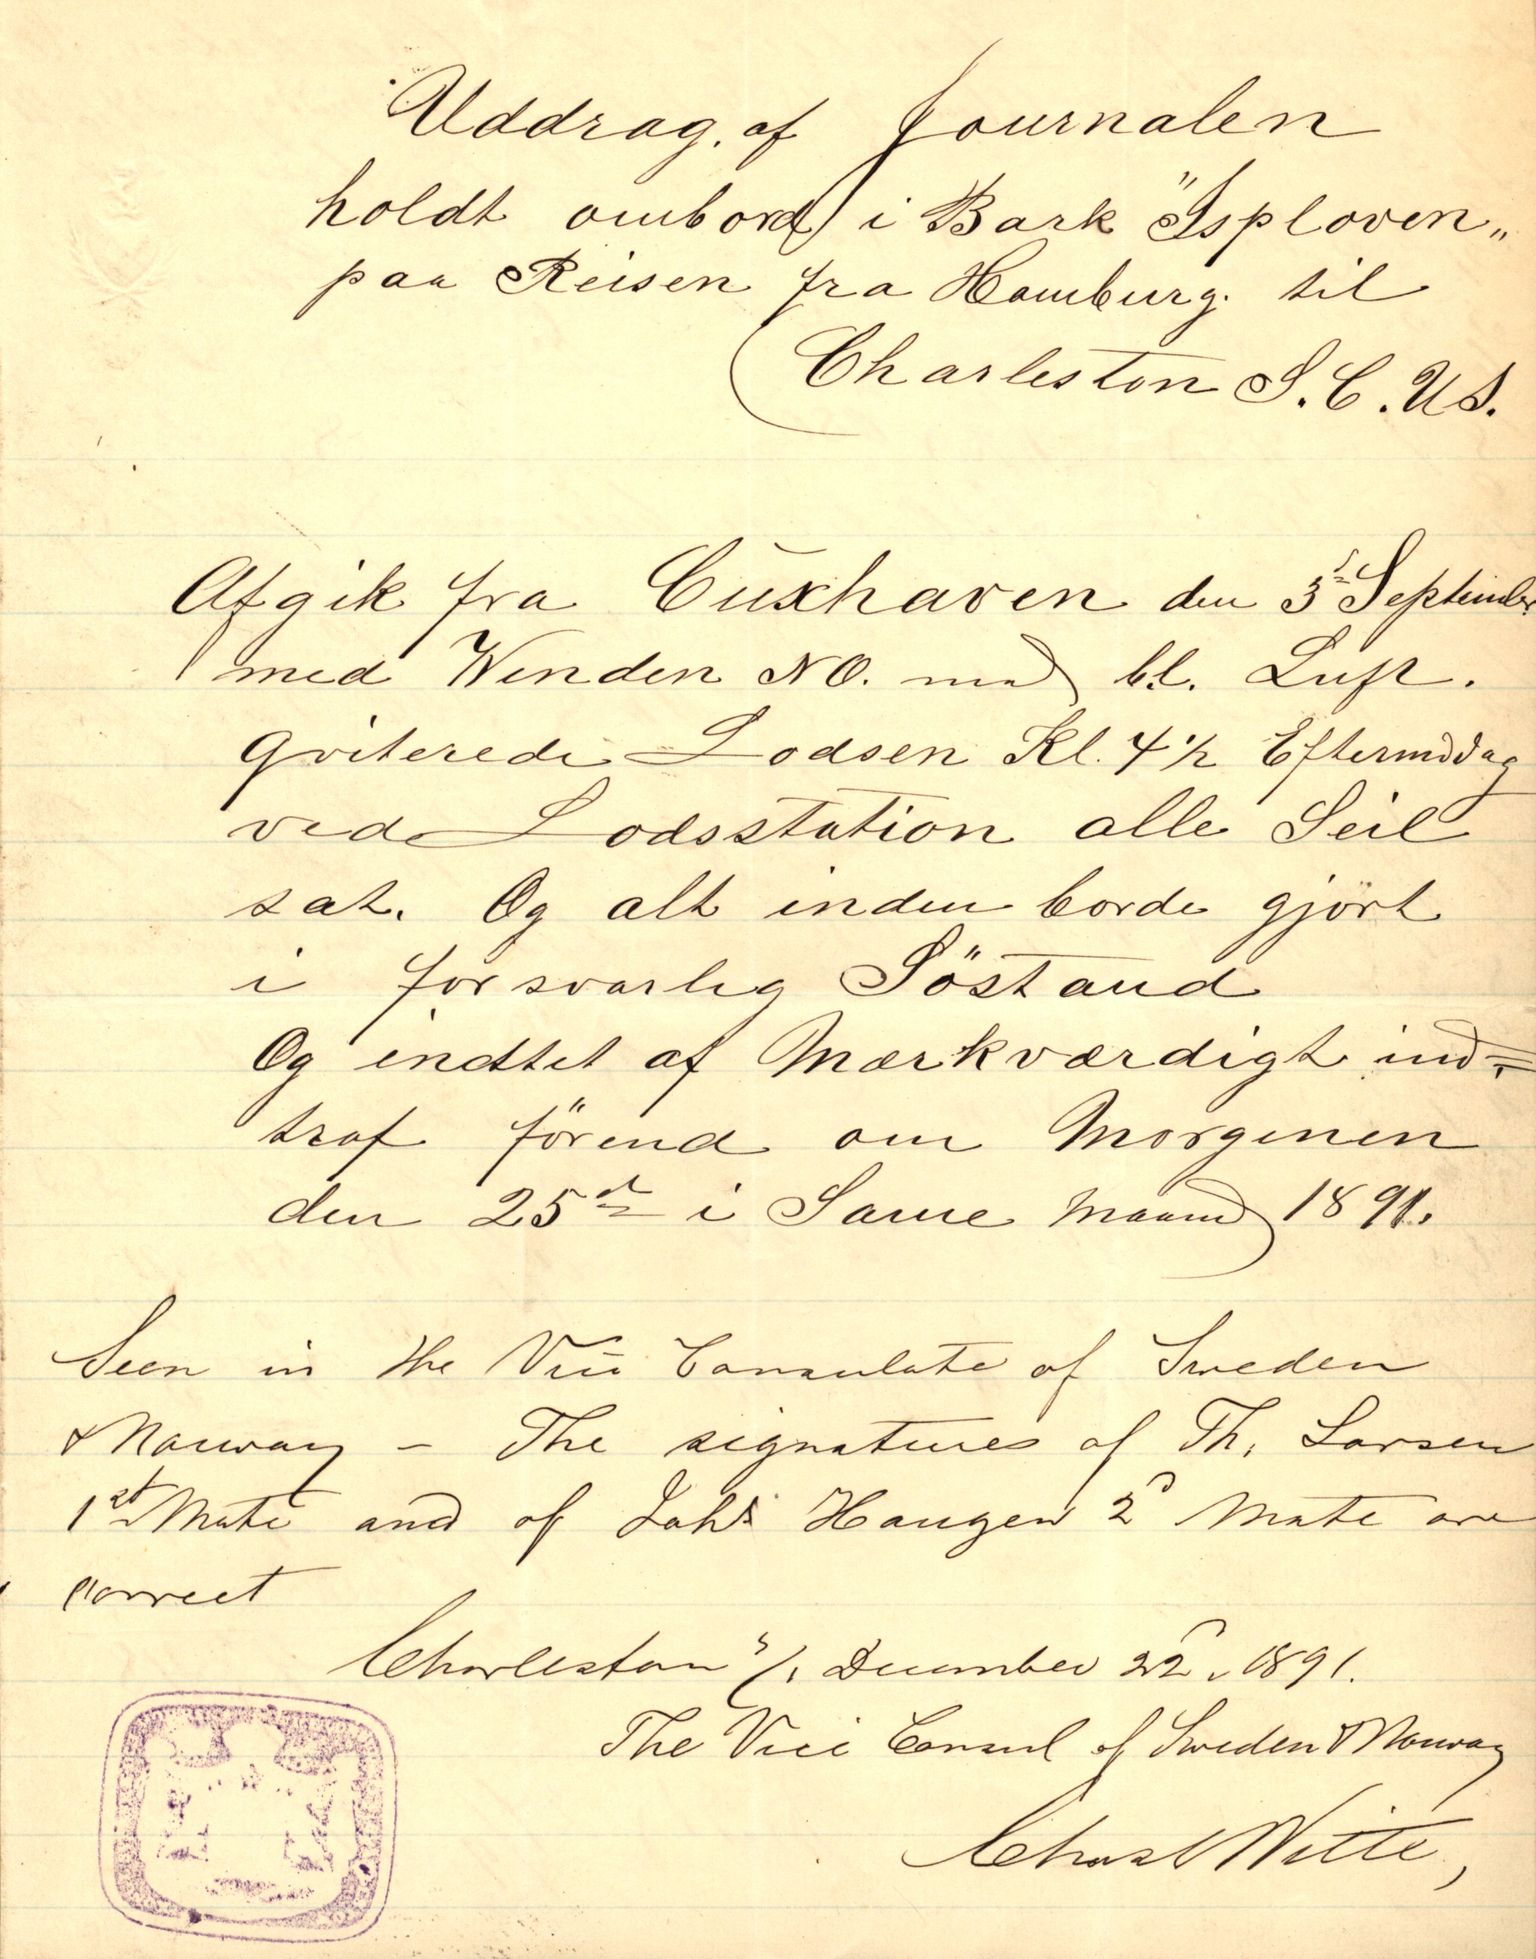 Uddrag. af Journalen
holdt ombord i Bark "Isploven„
paa Reisen fra Hamburg. til
Charleston S. C. U S.
Afgik fra Cuxhaven den 3 September
med Vinden NO. med bl. Luft.
Qviterede Lodsen Kl. 4 1/2 Eftermiddag
ved Lodsstation alle Seil
sat. Og alt inden borde gjört
i forsvarlig Söstand
Og indtet af Mærkværdigt ind=
traf förend om Morgenen
den 25de i Same Maaned 1891.
Seen in the Vice Consulate of Sweden
& Norway – The signatures of Th. Larsen
1st Mate and of Johs Haugen 2d Mate are
correct
Charleston S/C December 22d, 1891.
The Vice Consul of Sweden & Norway
Chas Witte,